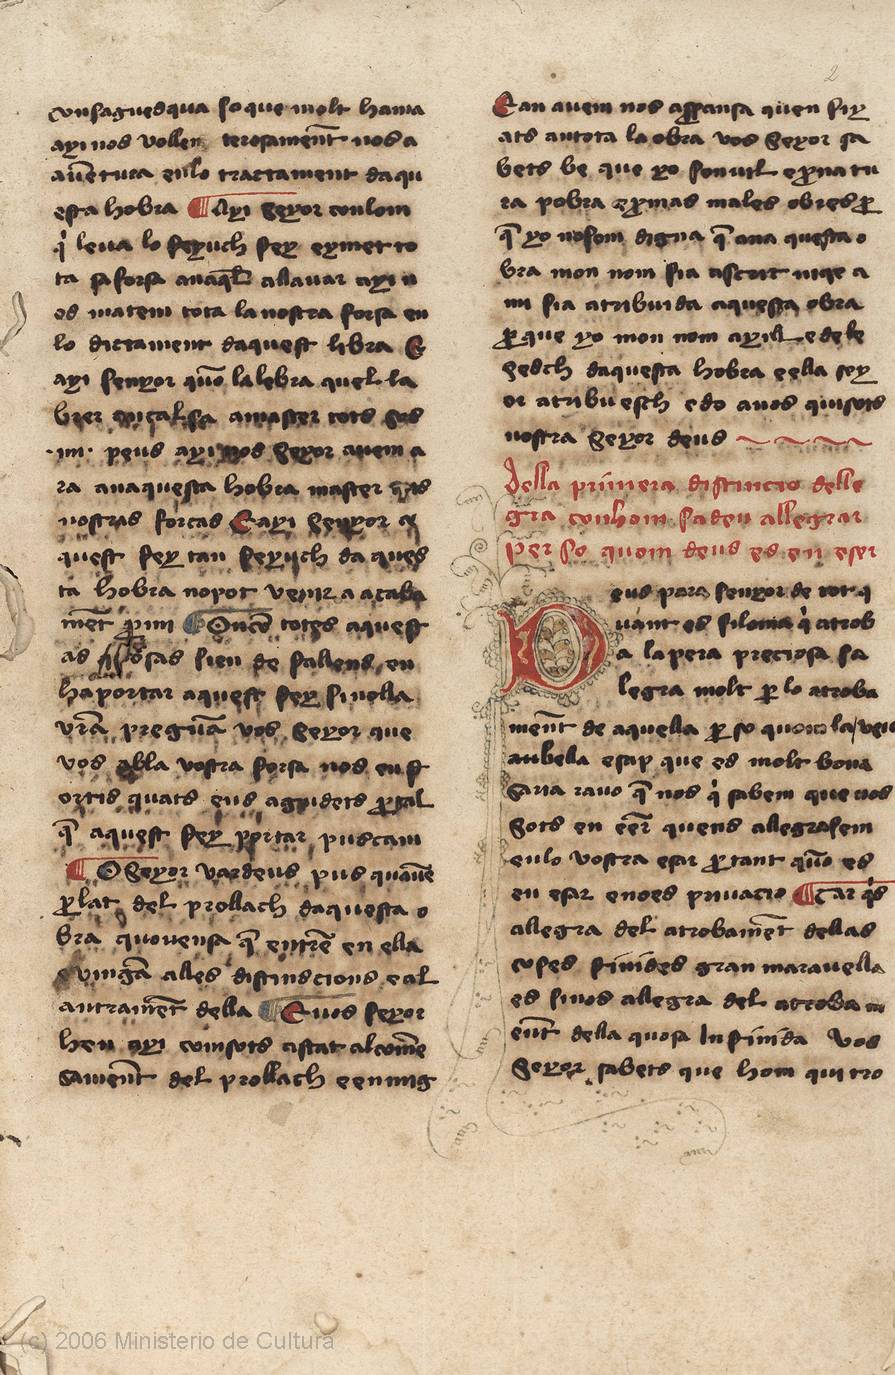 2
consaguesqua so que molt hauia
ayi nos vollem terosament nos a
auentura en lo tractament daqu
esta hobra Ayi seyor con lom
qi leua lo feyuch fey eymet to
ta sa forsa aallauar ayi n
os matem tota la nostra forsa en
lo dictament daquest libra E
ayi senyor quo la lebra quel la
brer a master tots sos
peus ayi nos seyor auem a
ra anaquesta hobra master
nostras forcas E ayi senyor a
quest fey tan feyuch da ques
ta hobra no pot venir a acaba
ment Once totes aquest
as sien de fallens en
ha portar aquest fey si nolla
vra vos seyor que
vos vostra forsa nos enf
ortis quats ens agudets tal
q aquest fey portar puscam
O seyor vardeus pus
lat del prollach daquesta o
bra quouensa q entre en ella
alles distinscions e al
antrament della E uos seyor
heu ayi consots astat al come
sament del prollach e en mig
E an auem nos asparansa quen siy
ats an tota la obra vos seyor sa
bets be que yo son util e natu
ra pobra e mas males obres p
q yo no som digna q ana questa o
bra mon nom sia ascrit niqe a
mi sia atribuida aquesta obra
p que yo mon nom ayill e dele
sesch daquesta hobra e ella sey
or atribuesch e do a uos qui sots
nostra seyor deus
Della primera distincio delle
gra con hom sa deu allegrar
per so quom deus es en eser
eus para senyor de tot q
uant es si lome qi atrob
a la pera preciosa sa
legra molt p lo atroba
ment de aquella p so quom la veu
an bella e sap que es molt bona
saria rauo q nos qi sabem que uos
sots en eer quens allegrasem
en lo vostra esar p tant quo es
en esar e no es priuacio Car qis
allegra del atrobament dellas
coses finides gran marauella
es si nos allegra del atrobam
ent della quosa Infinida Vos
Seyor sabets que hom qui tro
(c) 2006 Ministerio de Cultura